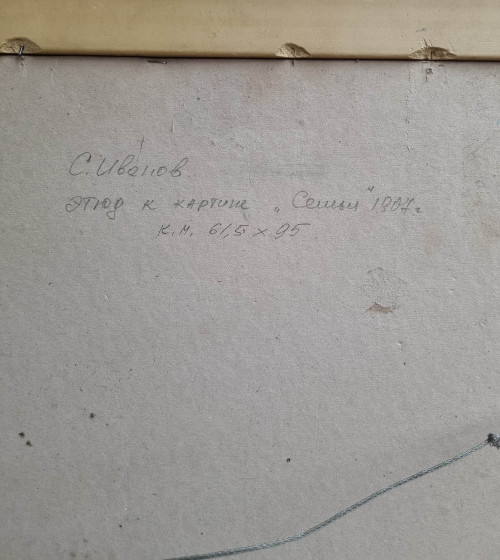 С. Иванов
этюд к картине „Семья" 1907г
к.м. 61,5 x 95